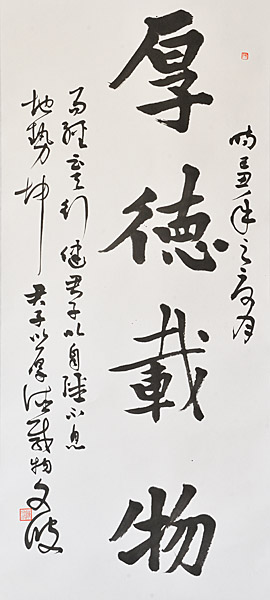 時己丑年之夏月
厚德載物
易經天行健君子以自强不息
地勢坤君子以厚德載物文波